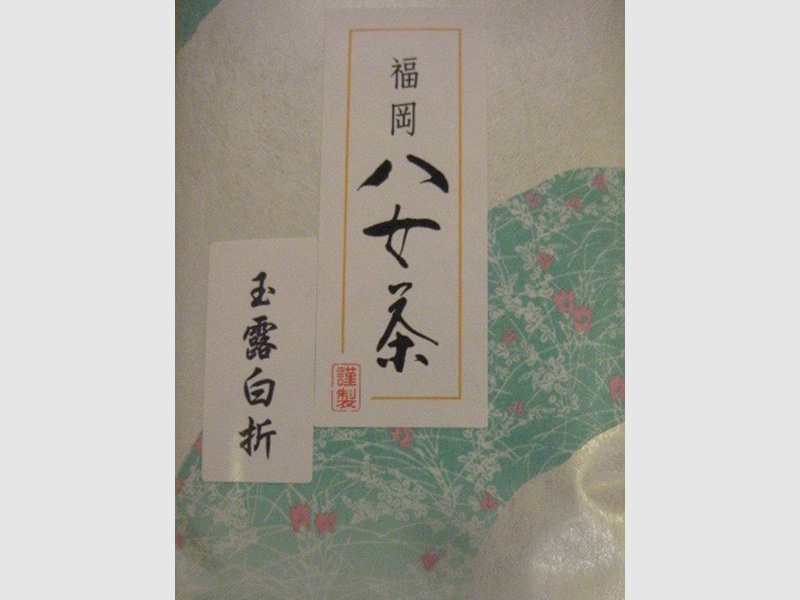 福岡
八女茶
謹製
玉露白折